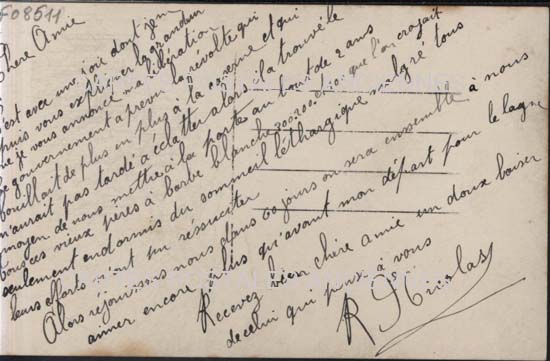 F08511
Chère Amie
C'est avec une joie dont j'en
puis vous exprimer la grandeur
que je vous annonce ma libération
Le gouvernement a prevu la révolte qui
bouillait de plus en plus à la caserne et qui
n'aurait pas tardé à éclatter alors il a trouvé le
moyen de nous mettre à la porte au bout de 2 ans
tous ces vieux pères à barbe blanche 200.200. ceux que l'on croyait
seulement endormis du sommeil léthargique malgré tous
leurs efforts n'ont pu réssuciter
Alors réjouissons nous dans 60 jours on sera ensemble à nous
aimer encore plus qu'avant mon départ pour le bagne
Recevez bien chère amie un doux baiser
de celui qui pense à vous
R Nicolas